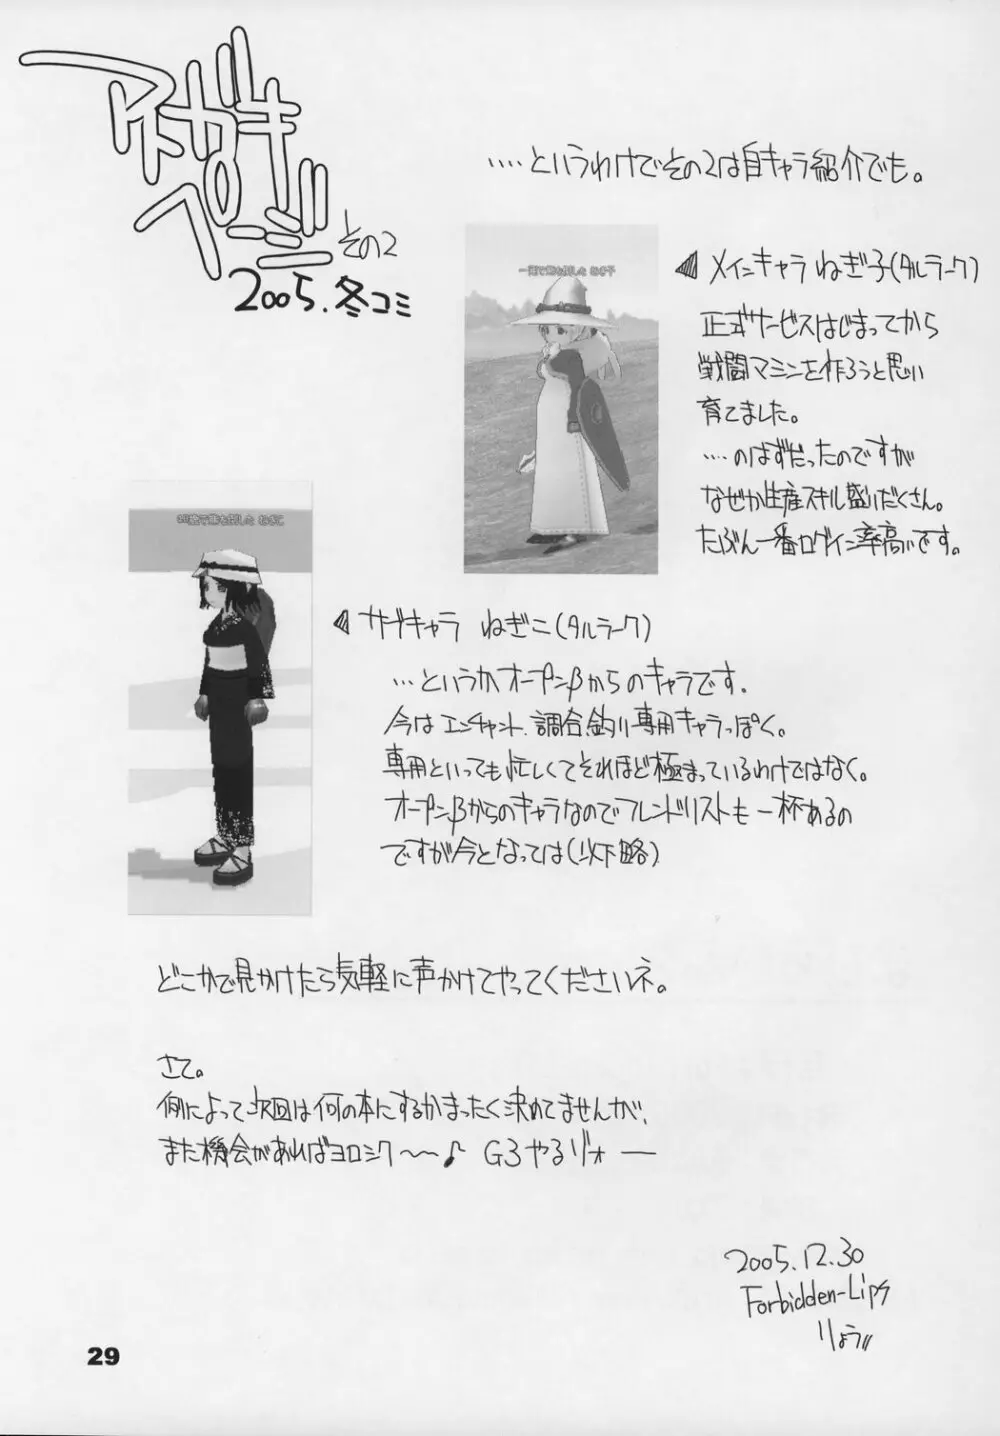 アトガキ
ページ
その2
2005.冬コミ
‥‥というわけでその2は自キャラ紹介でも。
一撃で熊を倒した ねぎ子
メインキャラ ねぎ子(タルラーク)
正式サービスはじまってから
戦闘マシンを作ろうと思い
育てました。
‥‥のはずだったのですが
なぜか生産スキル盛りだくさん。
たぶん一番ログイン率高いです。
10歳で熊を倒した ねぎこ
サブキャラ ねぎこ(タルラーク)
…というかオープンβからのキャラです。
今はエンチャント、調合、釣り専用キャラっぽく。
専用といっても忙しくてそれほど極まっているわけではなく。
オープンβからのキャラなのでフレンドリストも一杯あるの
ですが今となっては(以下略)
どこかで見かけたら気軽に声かけてやってくださいネ。
さて。
例によって次回は何の本にするかまったく決めてませんが、
また機会があればヨロシク〜〜♪ G3やるゾォー
2005.12.30
Forbidden-Lips
りょう
29